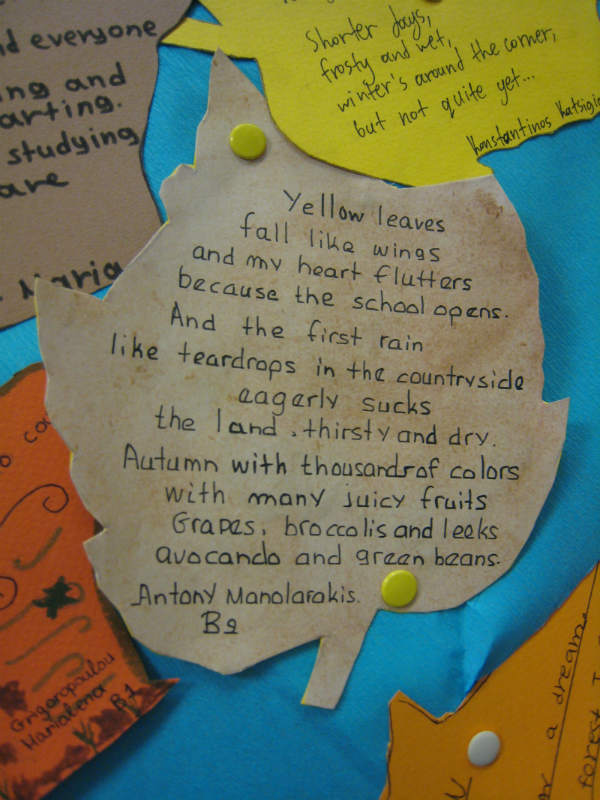 d everyone
ing and
arting.
studying
are
Maria
Shorter days,
frosty and wet,
winter's around the corner,
but not quite yet...
Konstantinos Katsigia
Yellow leaves
fall like wings
and my heart flutters
because the school opens.
And the first rain
like teardrops in the countryside
eagerly sucks
the land . thirsty and dry.
Autumn with thousands of colors
with many juicy fruits
Grapes, broccolis and leeks
avocando and green beans.
Antony Manolarakis.
B2
Grigoropoulou
Marialena B1
a dream
forest I